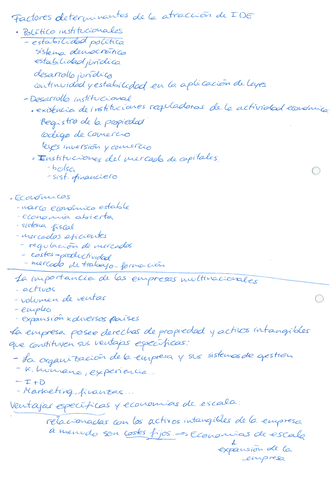 Factores determinantes de la atracción de IDE
• Político institucionales
- estabilidad política
sistema democrático
estabilidad jurídica
desarrollo jurídico
continuidad y estabilidad en la aplicación de leyes
- Desarrollo institucional
• existencia de instituciones reguladoras de la actividad económica
Registro de la propiedad
Código de Comercio
leyes inversión y comercio
• Instituciones del mercado de capitales
- bolsa
- sist. financiero
• Económicos
- marco económico estable
- economía abierta
- sistema fiscal
- mercados eficientes
- regulación de mercados
- costes y productividad
- mercado de trabajo - formación
La importancia de las empresas multinacionales
- activos
- volumen de ventas
- empleo
- expansión x diversos países
La empresa posee derechos de propiedad y activos intangibles
que constituyen sus ventajas específicas:
- La organización de la empresa y sus sistemas de gestión
- K. humano, experiencia...
- I+D
- Marketing, finanzas...
Ventajas específicas y economías de escala
relacionadas con los activos intangibles de la empresa
a menudo son costes fijos → Economías de escala
↓
expansión de la
empresa